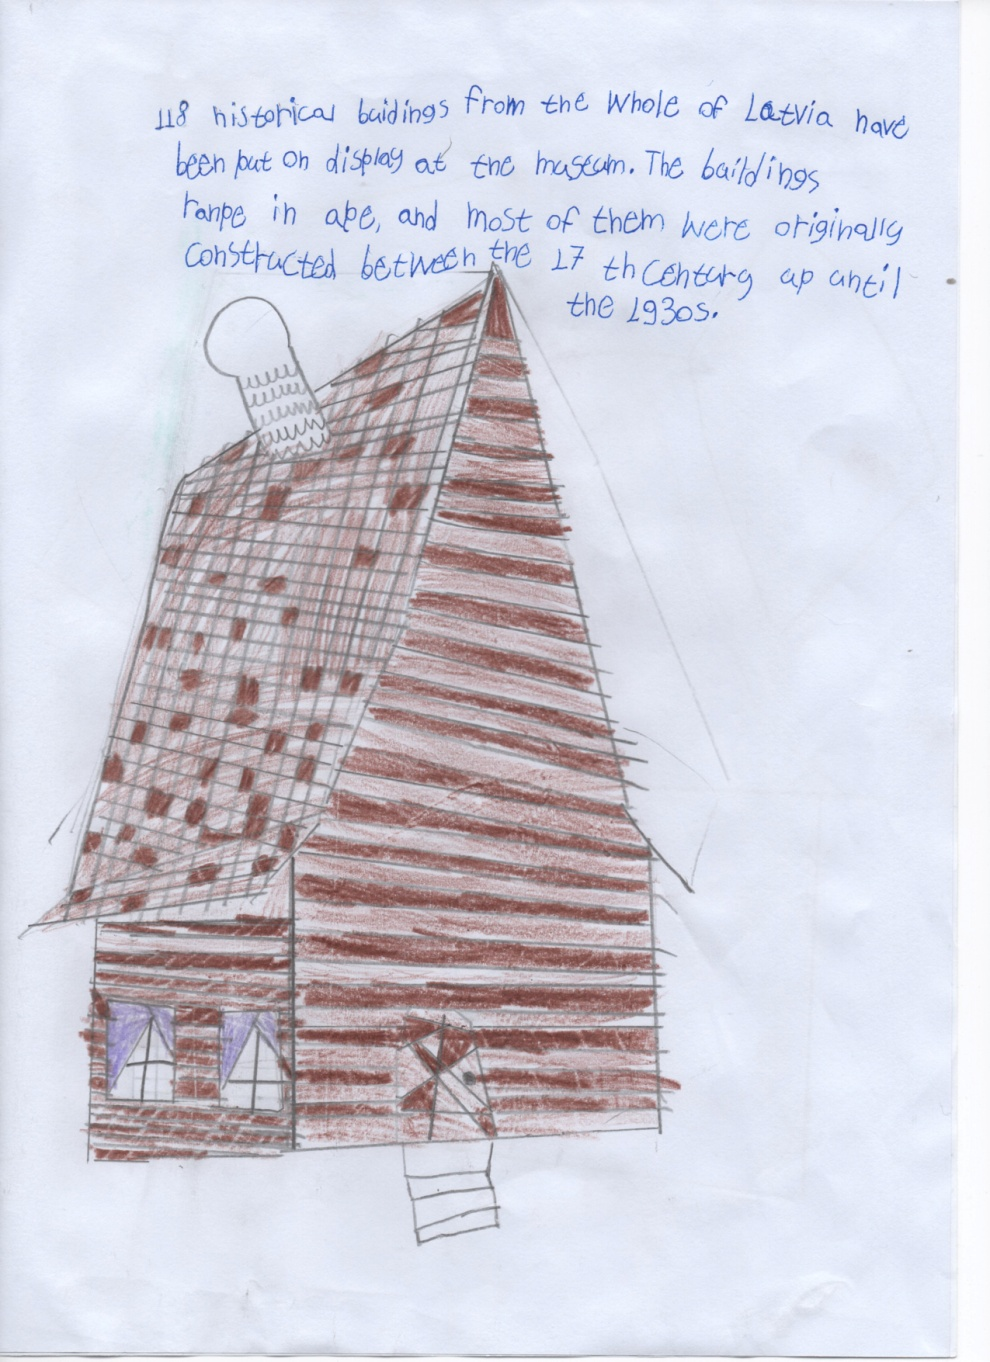 118 historical buidings from the whole of Latvia have
been put on display at the museum. The buildings
range in age, and most of them were originally
constructed between the 17 th century up until
the 1930s.